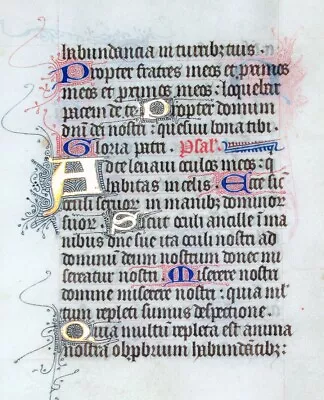 habundancia in turribz tuis .
Propter fratres meos et primos
meos et primos meos : loquebar
pacem de te . Propter domum
dni dei nostri : quesiui bona tibi .
Gloria patri . Psal
Ad te leuaui oculos meos : q
habitas in celis . Ecce sic
oculi seruor in manibz dominor
suor . Sicut oculi ancille in ma
nibus dne sue ita oculi nostri ad
dominu deum nostrum donec mi
sereatur nostri . Miserere nostri
domine miserere nostri : quia mul
tum repleti sumus despectione .
Quia multu repleta est anima
nostra obprobrium habundantibz :